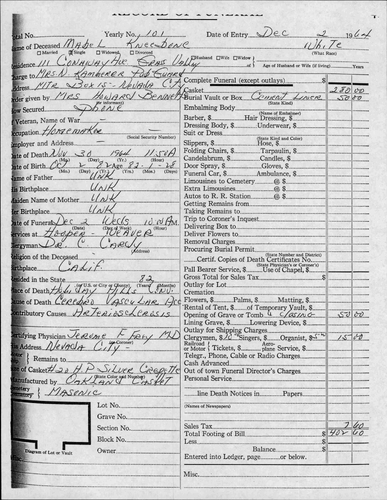 RECORD OF FUNERAL
Total No. Yearly No. 101 Date of Entry Dec 2 1964
Name of Deceased Mabel Kneebone White
Married Single Widowed Divorced Husband Wife Widow (What Race)
Residence 111 Conaway Ave Grass Valley of Age of Husband or Wife (if living)
Charge to Mrs N Kamberer Pub Guard
Complete Funeral (except outlays) $
Address MTR Box 15 - Nevada City
Casket 280 00
Order given by Mrs Howard Bennett
Burial Vault or Box Cement Liner 50 00
(State Kind)
Secured Phone
Embalming Body
(Name of Embalmer)
Veteran, Name of War
Barber, $ Hair Dressing, $
Dressing Body, $ Underwear, $
Occupation Homemaker
Suit or Dress
(Social Security Number) (State Kind)
Employer and Address
Slippers, $ Hose, $
Folding Chairs, $ Tarpaulin, $
Date of Death Nov 30 1964 11:50A
Candelabrum, $ Candles, $
(Mo.) (Day) (Yr.) (Hour)
Door Spray, $ Gloves, $
Date of Birth Oct 2 - 82 82-1-28
Funeral Car, $ Ambulance, $
Name of Father Unk
Limousines to Cemetery @ $
Extra Limousines @ $
His Birthplace Unk
Autos to R. R. Station @ $
Maiden Name of Mother Unk
Getting Remains from
Taking Remains to
Her Birthplace Unk
Trip to Coroner's Inquest
Date of Funeral Dec 2 Weds 10:00AM
Delivering Box to
(Date) (Day of Week) (Hour)
Deliver Flowers to
Services at Hooper - Weaver
Removal Charges
Clergyman Dr. C. Cardy
Procuring Burial Permit
(State Number and District)
Certif. Copies of Death Certificates No.
Religion of the Deceased
(State Physician's or Coroner's)
Pall Bearer Service, $ Use of Chapel, $
Birthplace Calif.
Gross Total for Sales Tax $
Resided in the State 82
Outlay for Lot
(of U.S. or City or County) (Years) (Months)
Cremation
Flowers, $ Palms, $ Matting, $
Cause of Death Cerebro Vascular Acc
Rental of Tent, $ of Temporary Vault, $
Contributory Causes Arteriosclerosis
Opening of Grave or Tomb 50 00
Lining Grave, $ Lowering Device, $
Outlay for Shipping Charges
Certifying Physician Jerome F Frey MD
Clergymen, $10 Singers, $ Organist, $5 15 00
Railroad or Motor Tickets, $ Aeroplane Service, $
His Address Nevada City
Telegr., Phone, Cable or Radio Charges
Remains to
Cash Advanced
Out of town Funeral Director's Charges
Personal Service
Manufactured by Oakland Casket
line Death Notices in Papers
(Names of Newspapers)
Masonic
Lot No.
Grave No.
Section No.
Sales Tax
Block No.
Total Footing of Bill $
Less
Owner
Balance $
Diagram of Lot or Vault
Entered into Ledger, page or below.
Misc.